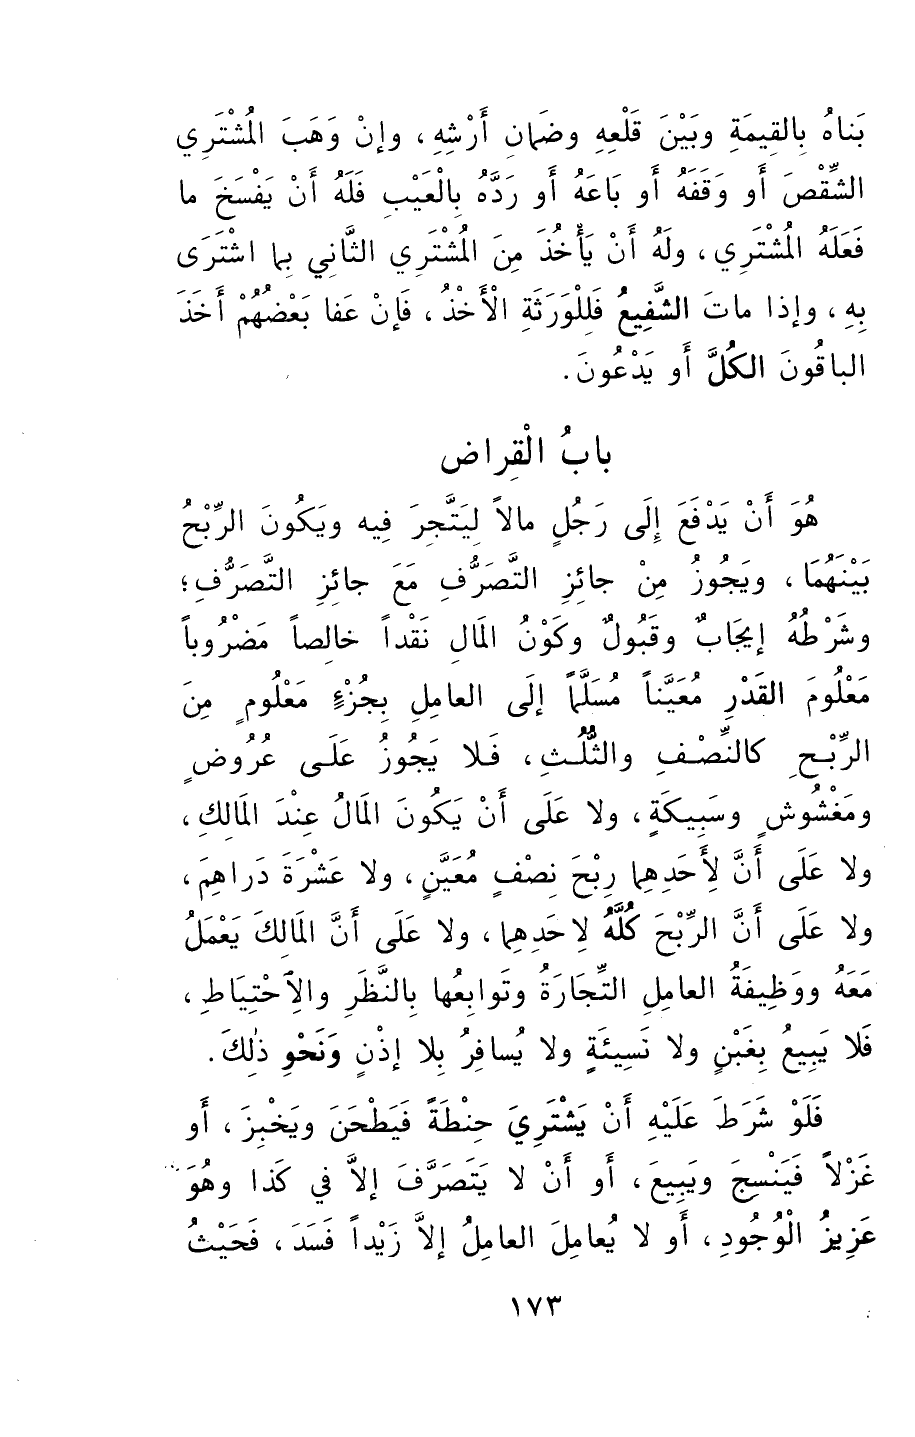 بَناهُ بِالقِيمَةِ وبَيْنَ قَلْعِهِ وضَمانِ أَرْشِهِ، وإنْ وَهَبَ المُشْتَرِي
الشِّقْصَ أَو وَقَفَهُ أَو بَاعَهُ أَو رَدَّهُ بِالْعَيْبِ فَلَهُ أَنْ يَفْسَخَ ما
فَعَلَهُ المُشْتَرِي، ولَهُ أَنْ يَأْخُذَ مِنَ المُشْتَرِي الثَّانِي بِما اشْتَرَى
بِهِ، وإذا ماتَ الشَّفِيعُ فَلِلْوَرَثَةِ الْأَخْذُ، فَإنْ عَفا بَعْضُهُمْ أَخَذَ
الباقُونَ الكُلَّ أَو يَدْعُونَ.
بابُ الْقِراض
هُوَ أَنْ يَدْفَعَ إِلَى رَجُلٍ مالاً لِيَتَّجِرَ فِيه ويَكُونَ الرِّبْحُ
بَيْنَهُمَا، ويَجُوزُ مِنْ جائِزِ التَّصَرُّفِ مَعَ جائِزِ التَّصَرُّفِ؛
وشَرْطُهُ إيجَابٌ وقَبُولٌ وكَوْنُ المَالِ نَقْداً خالِصاً مَضْرُوباً
مَعْلُومَ القَدْرِ مُعَيَّناً مُسَلَّماً إلَى العامِلِ بِجُزْءٍ مَعْلُومٍ مِنَ
الرِّبْحِ كالنِّصْفِ والثُّلُثِ، فَلا يَجُوزُ عَلَى عُرُوضٍ
ومَغْشُوشٍ وسَبِيكَةٍ، ولا عَلَى أَنْ يَكُونَ المَالُ عِنْدَ المَالِكِ،
ولا عَلَى أَنَّ لِأَحَدِهِما رِبْحَ نِصْفٍ مُعَيَّنٍ، ولا عَشْرَةَ دَراهِمَ،
ولا عَلَى أَنَّ الرِّبْحَ كُلَّهُ لِاحَدِهِما، ولا عَلَى أَنَّ المَالِكَ يَعْمَلُ
مَعَهُ ووَظِيفَةُ العامِلِ التِّجَارَةُ وتَوابِعُها بِالنَّظَرِ والِاحْتِيَاطِ،
فَلا يَبِيعُ بِغَبْنٍ ولا نَسِيئَةٍ ولا يُسافِرُ بِلا إذْنٍ وَنَحْوِ ذٰلِكَ.
فَلَوْ شَرَطَ عَلَيْهِ أَنْ يَشْتَرِيَ حِنْطَةً فَيَطْحَنَ ويَخْبِزَ، أَو
غَزْلاً فَيَنْسِجَ ويَبِيعَ، أَو أَنْ لا يَتَصَرَّفَ إلاَّ في كَذا وهُوَ
عَزِيزُ الْوُجُودِ، أَو لا يُعامِلَ العامِلُ إلاَّ زَيْداً فَسَدَ، فَحَيْثُ
١٧٣